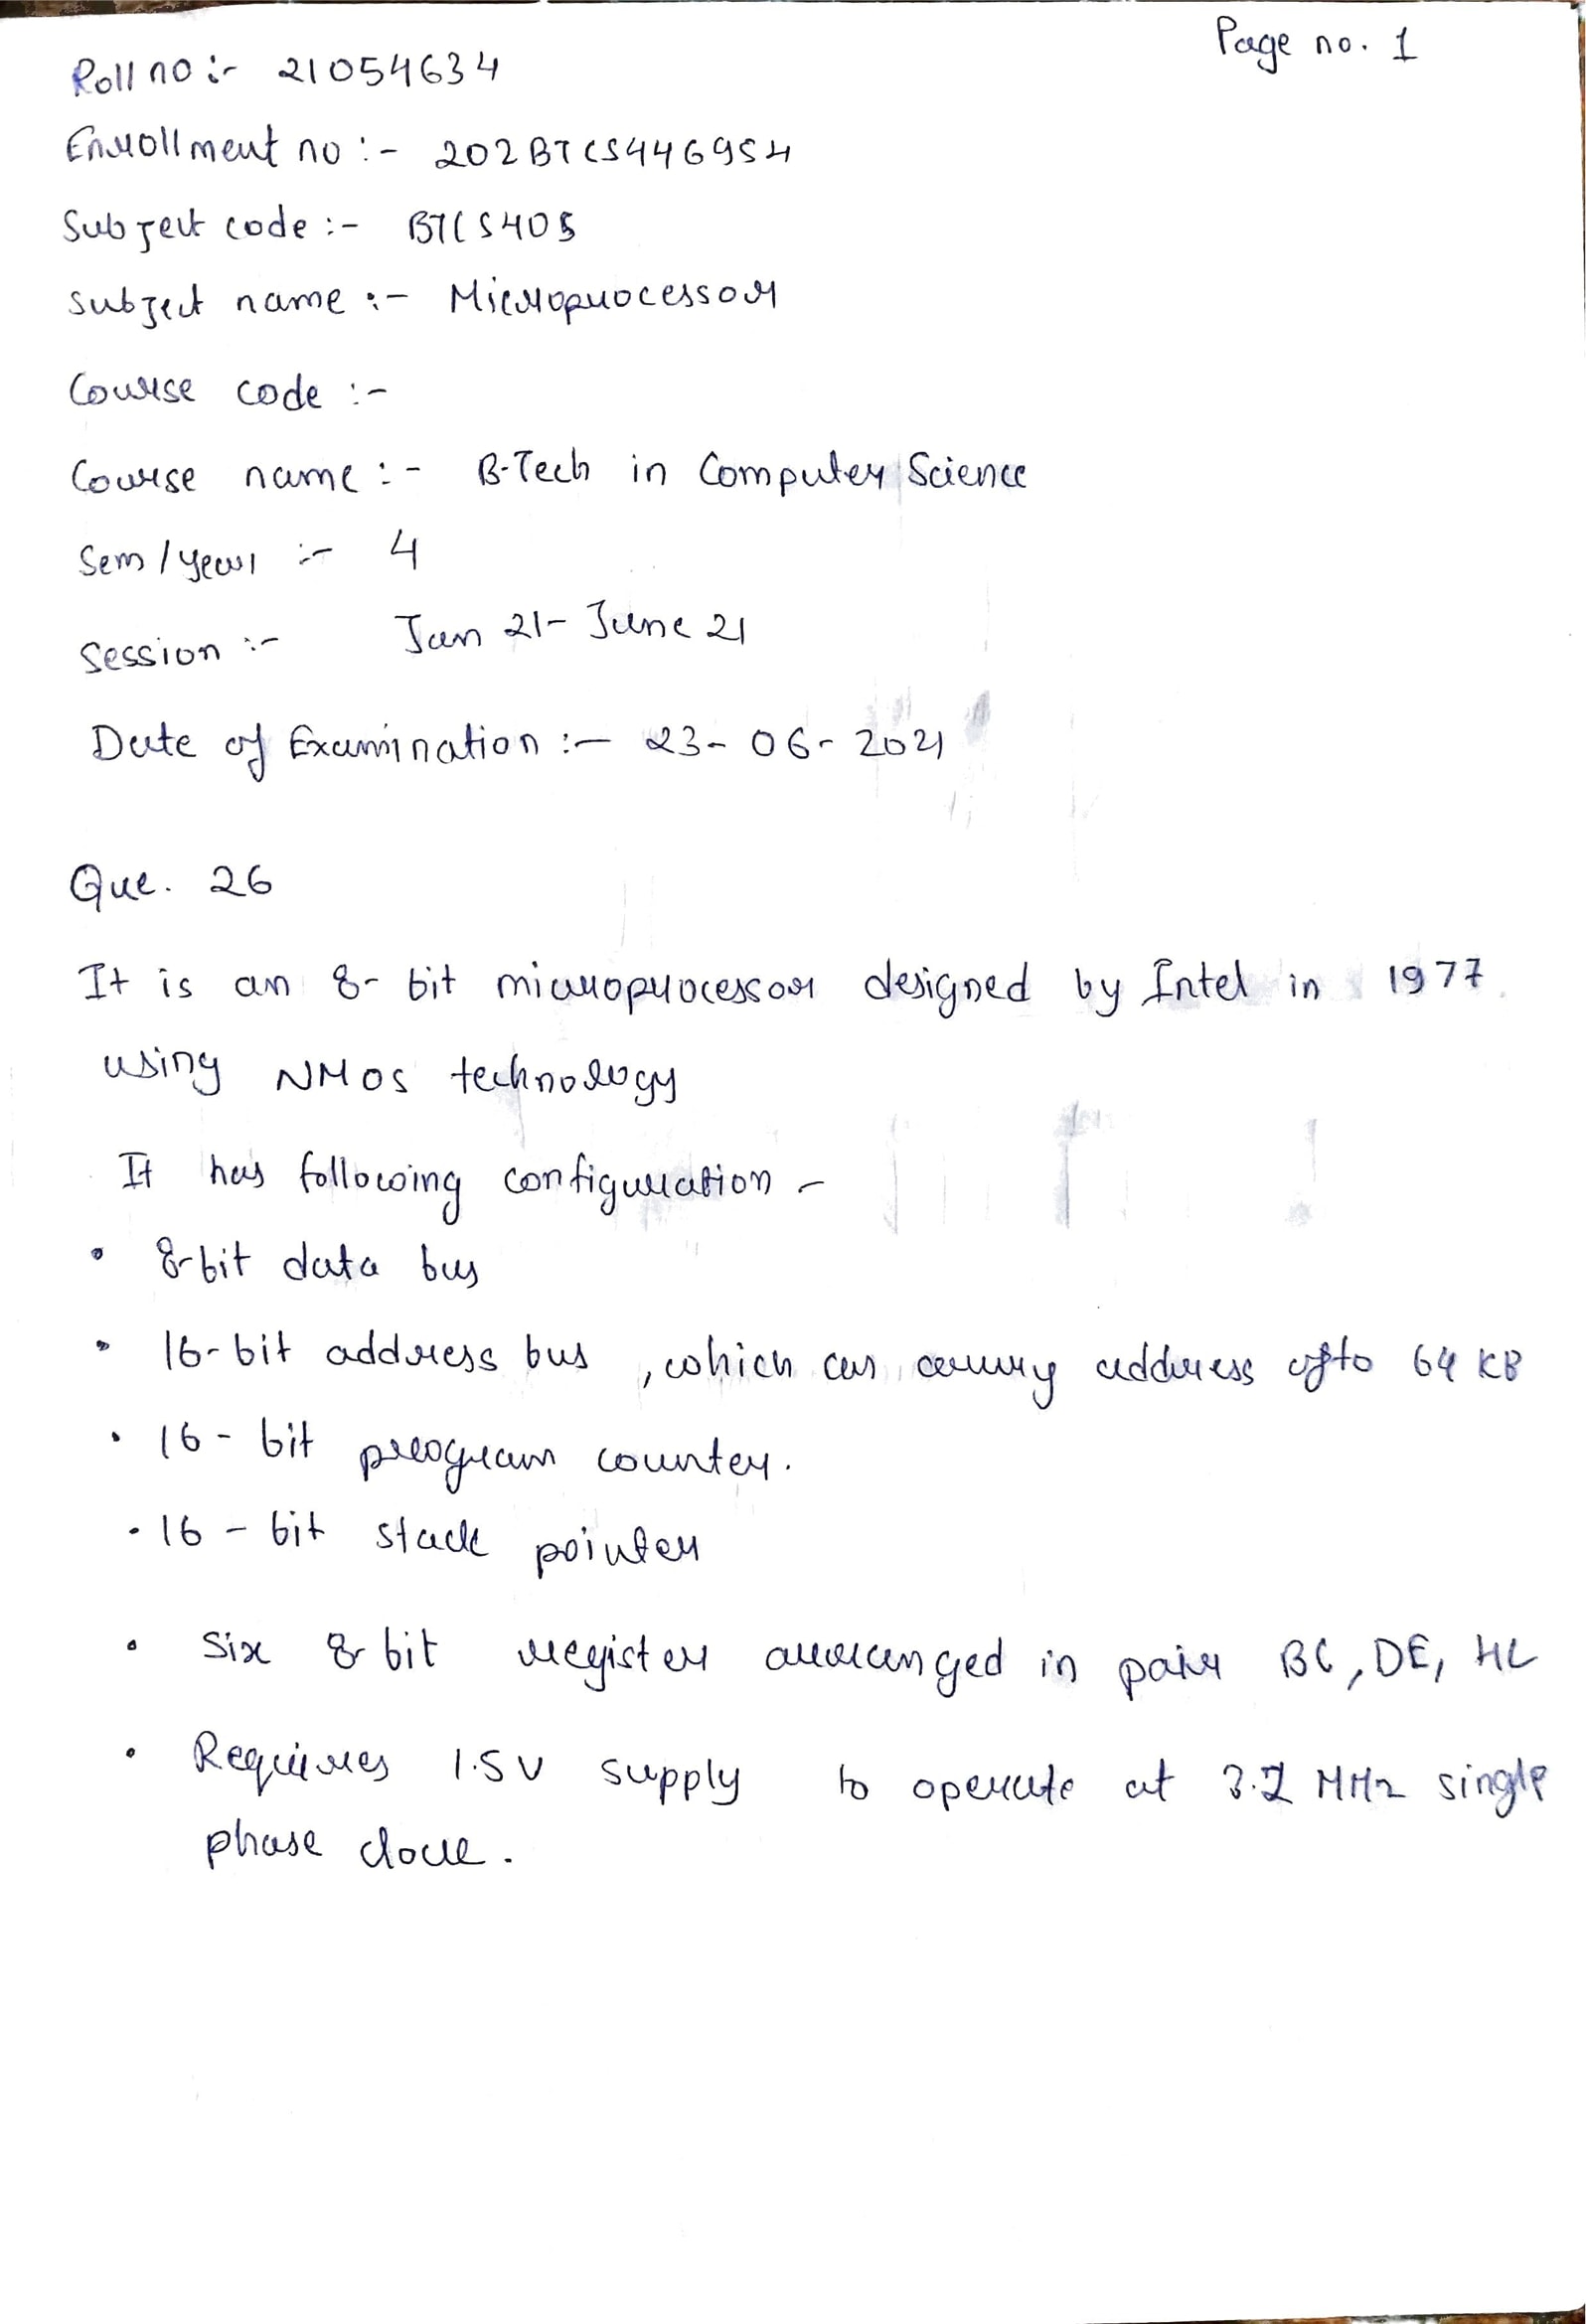 Page no. 1
Roll no :- 21054634
Enrollment no :- 202BTCS446954
Subject code :- BTCS405
Subject name :- Microprocessor
Course code :-
Course name :- B-Tech in Computer Science
Sem / year :- 4
Session :- Jan 21- June 21
Date of Examination :- 23-06-2021
Que. 26
It is an 8-bit microprocessor designed by Intel in 1977
using NMOS technology
It has following configuration -
• 8-bit data bus
• 16-bit address bus , which can carry address upto 64 KB
• 16-bit program counter.
• 16-bit stack pointer
• Six 8-bit register arranged in pair BC, DE, HL
• Requires 1.5V supply to operate at 3.2 MHz single
phase clock.